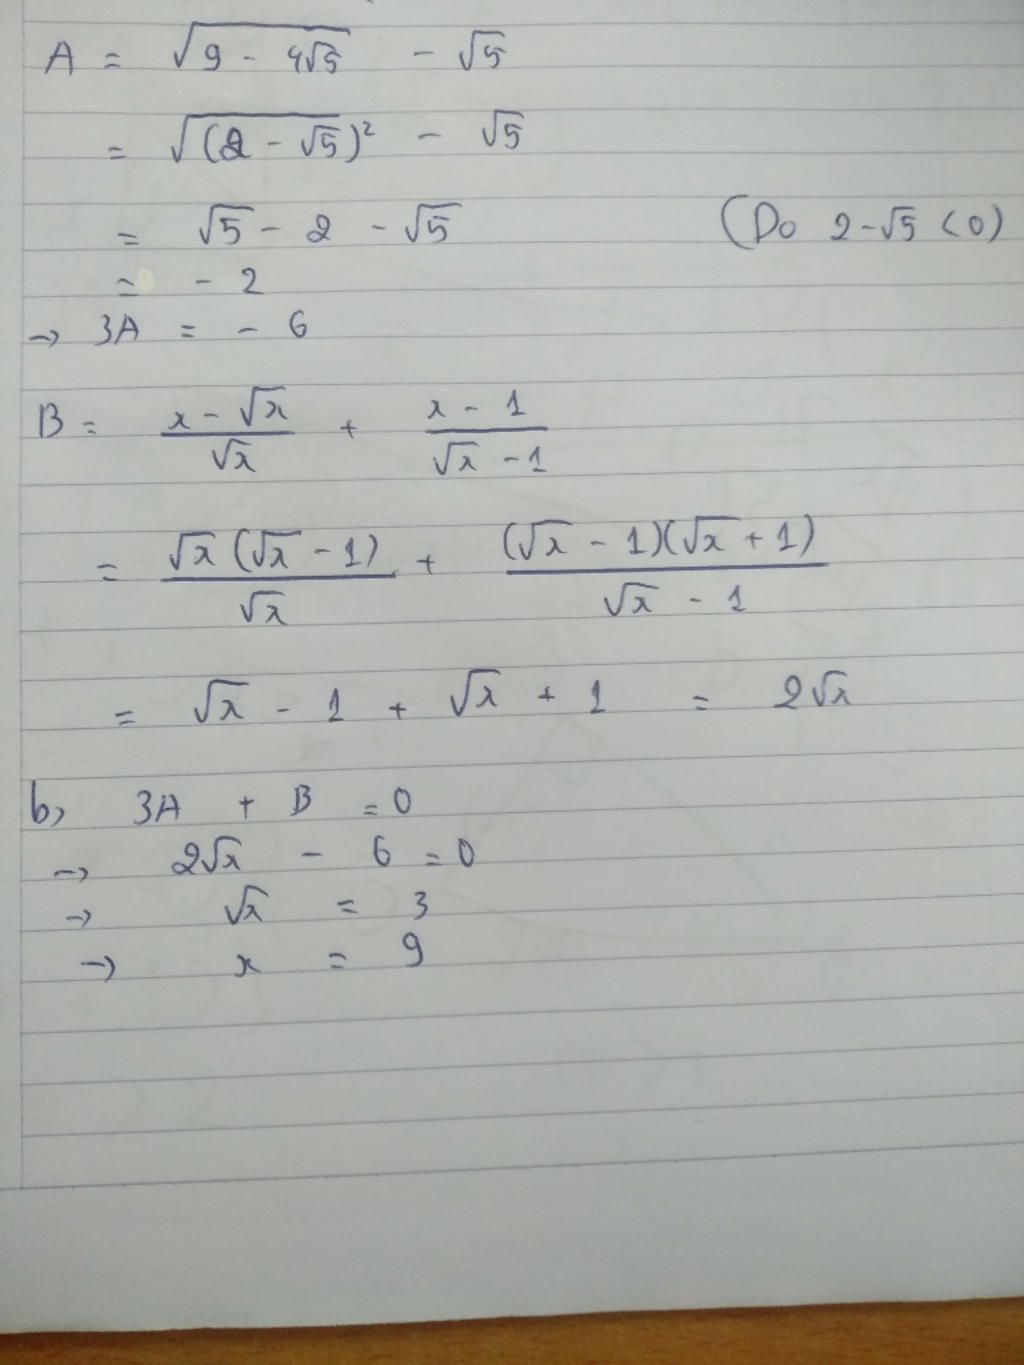 A = √(9 - 4√5) - √5
= √((2 - √5)²) - √5
= √5 - 2 - √5 (Do 2 - √5 < 0)
= - 2
→ 3A = - 6
B = (x - √x)/√x + (x - 1)/(√x - 1)
= √x (√x - 1)/√x + (√x - 1)(√x + 1)/(√x - 1)
= √x - 1 + √x + 1 = 2√x
b, 3A + B = 0
→ 2√x - 6 = 0
→ √x = 3
→ x = 9